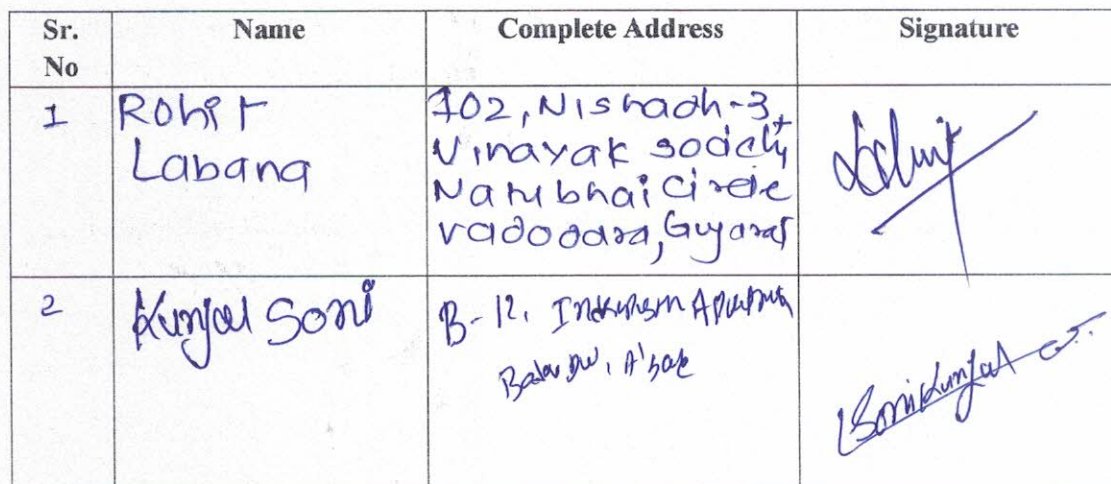 Sr. No
Name
Complete Address
Signature
1
Rohit
Labana
102, Nishadh-3,
Vinayak society
Natubhai Circle
vadodara, Gujarat
2
Kunjal Soni
B-12,
A'bad
Soni Kunjal